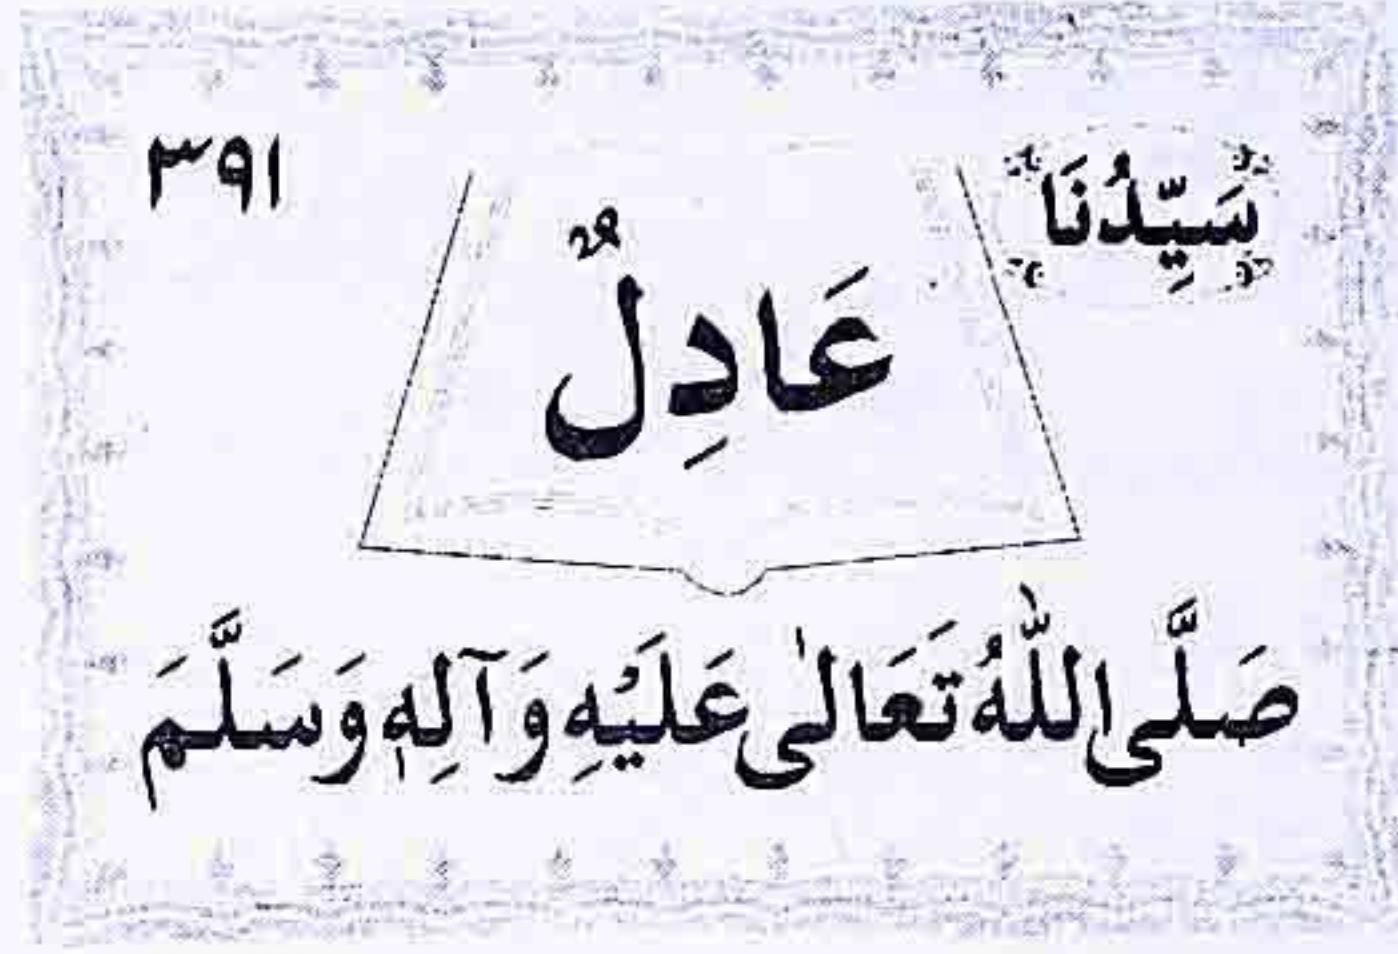 سَيِّدُنَا
٣٩١
عَادِلٌ
صَلَّى اللّٰهُ تَعَالٰى عَلَيْهِ وَآلِهٖ وَسَلَّمَ